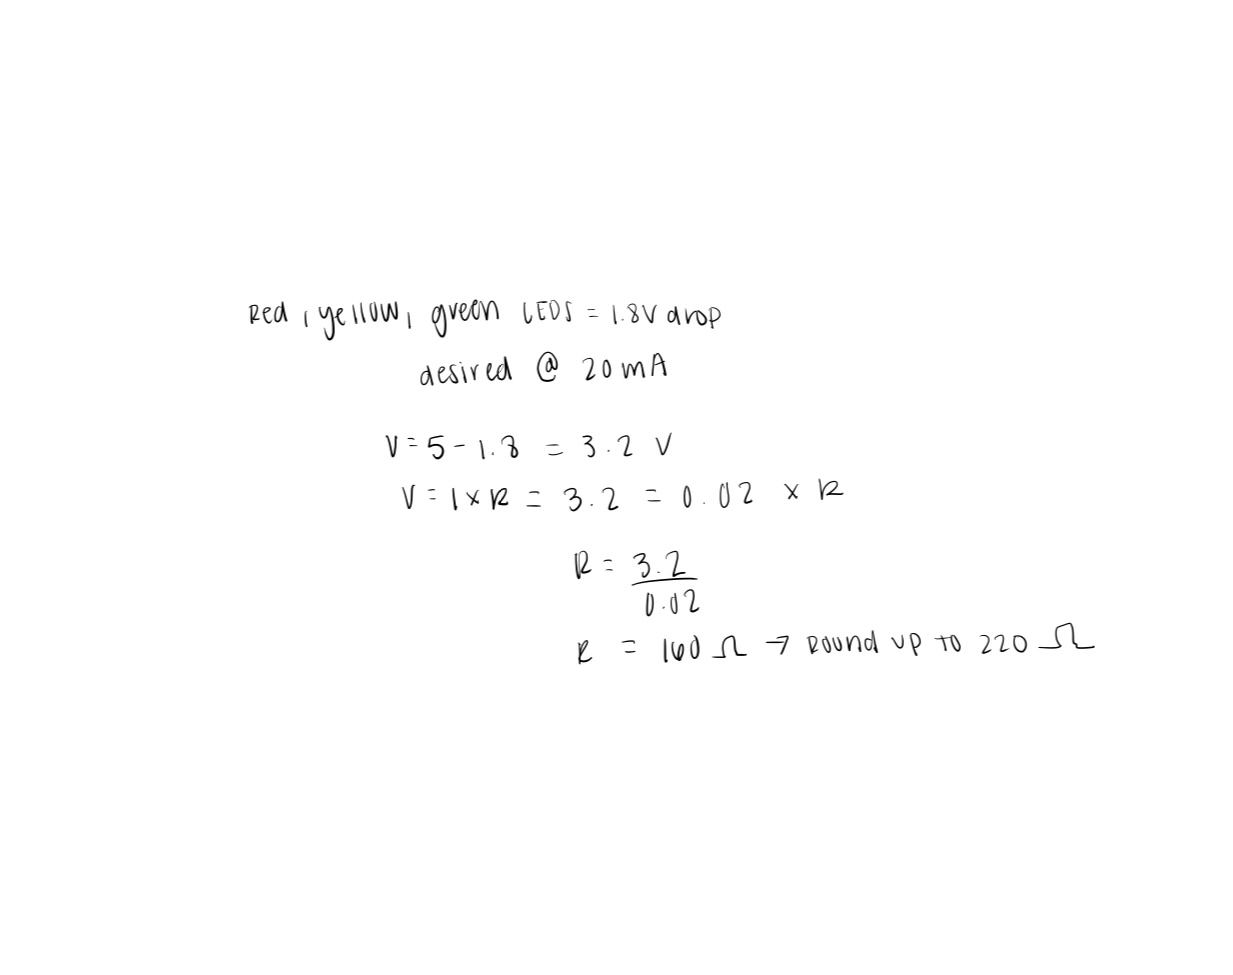 Red, yellow, green LEDS = 1.8V drop
desired @ 20 mA
V = 5 - 1.8 = 3.2 V
V = I x R = 3.2 = 0.02 x R
R = 3.2
0.02
R = 160 Ω → Round up to 220 Ω